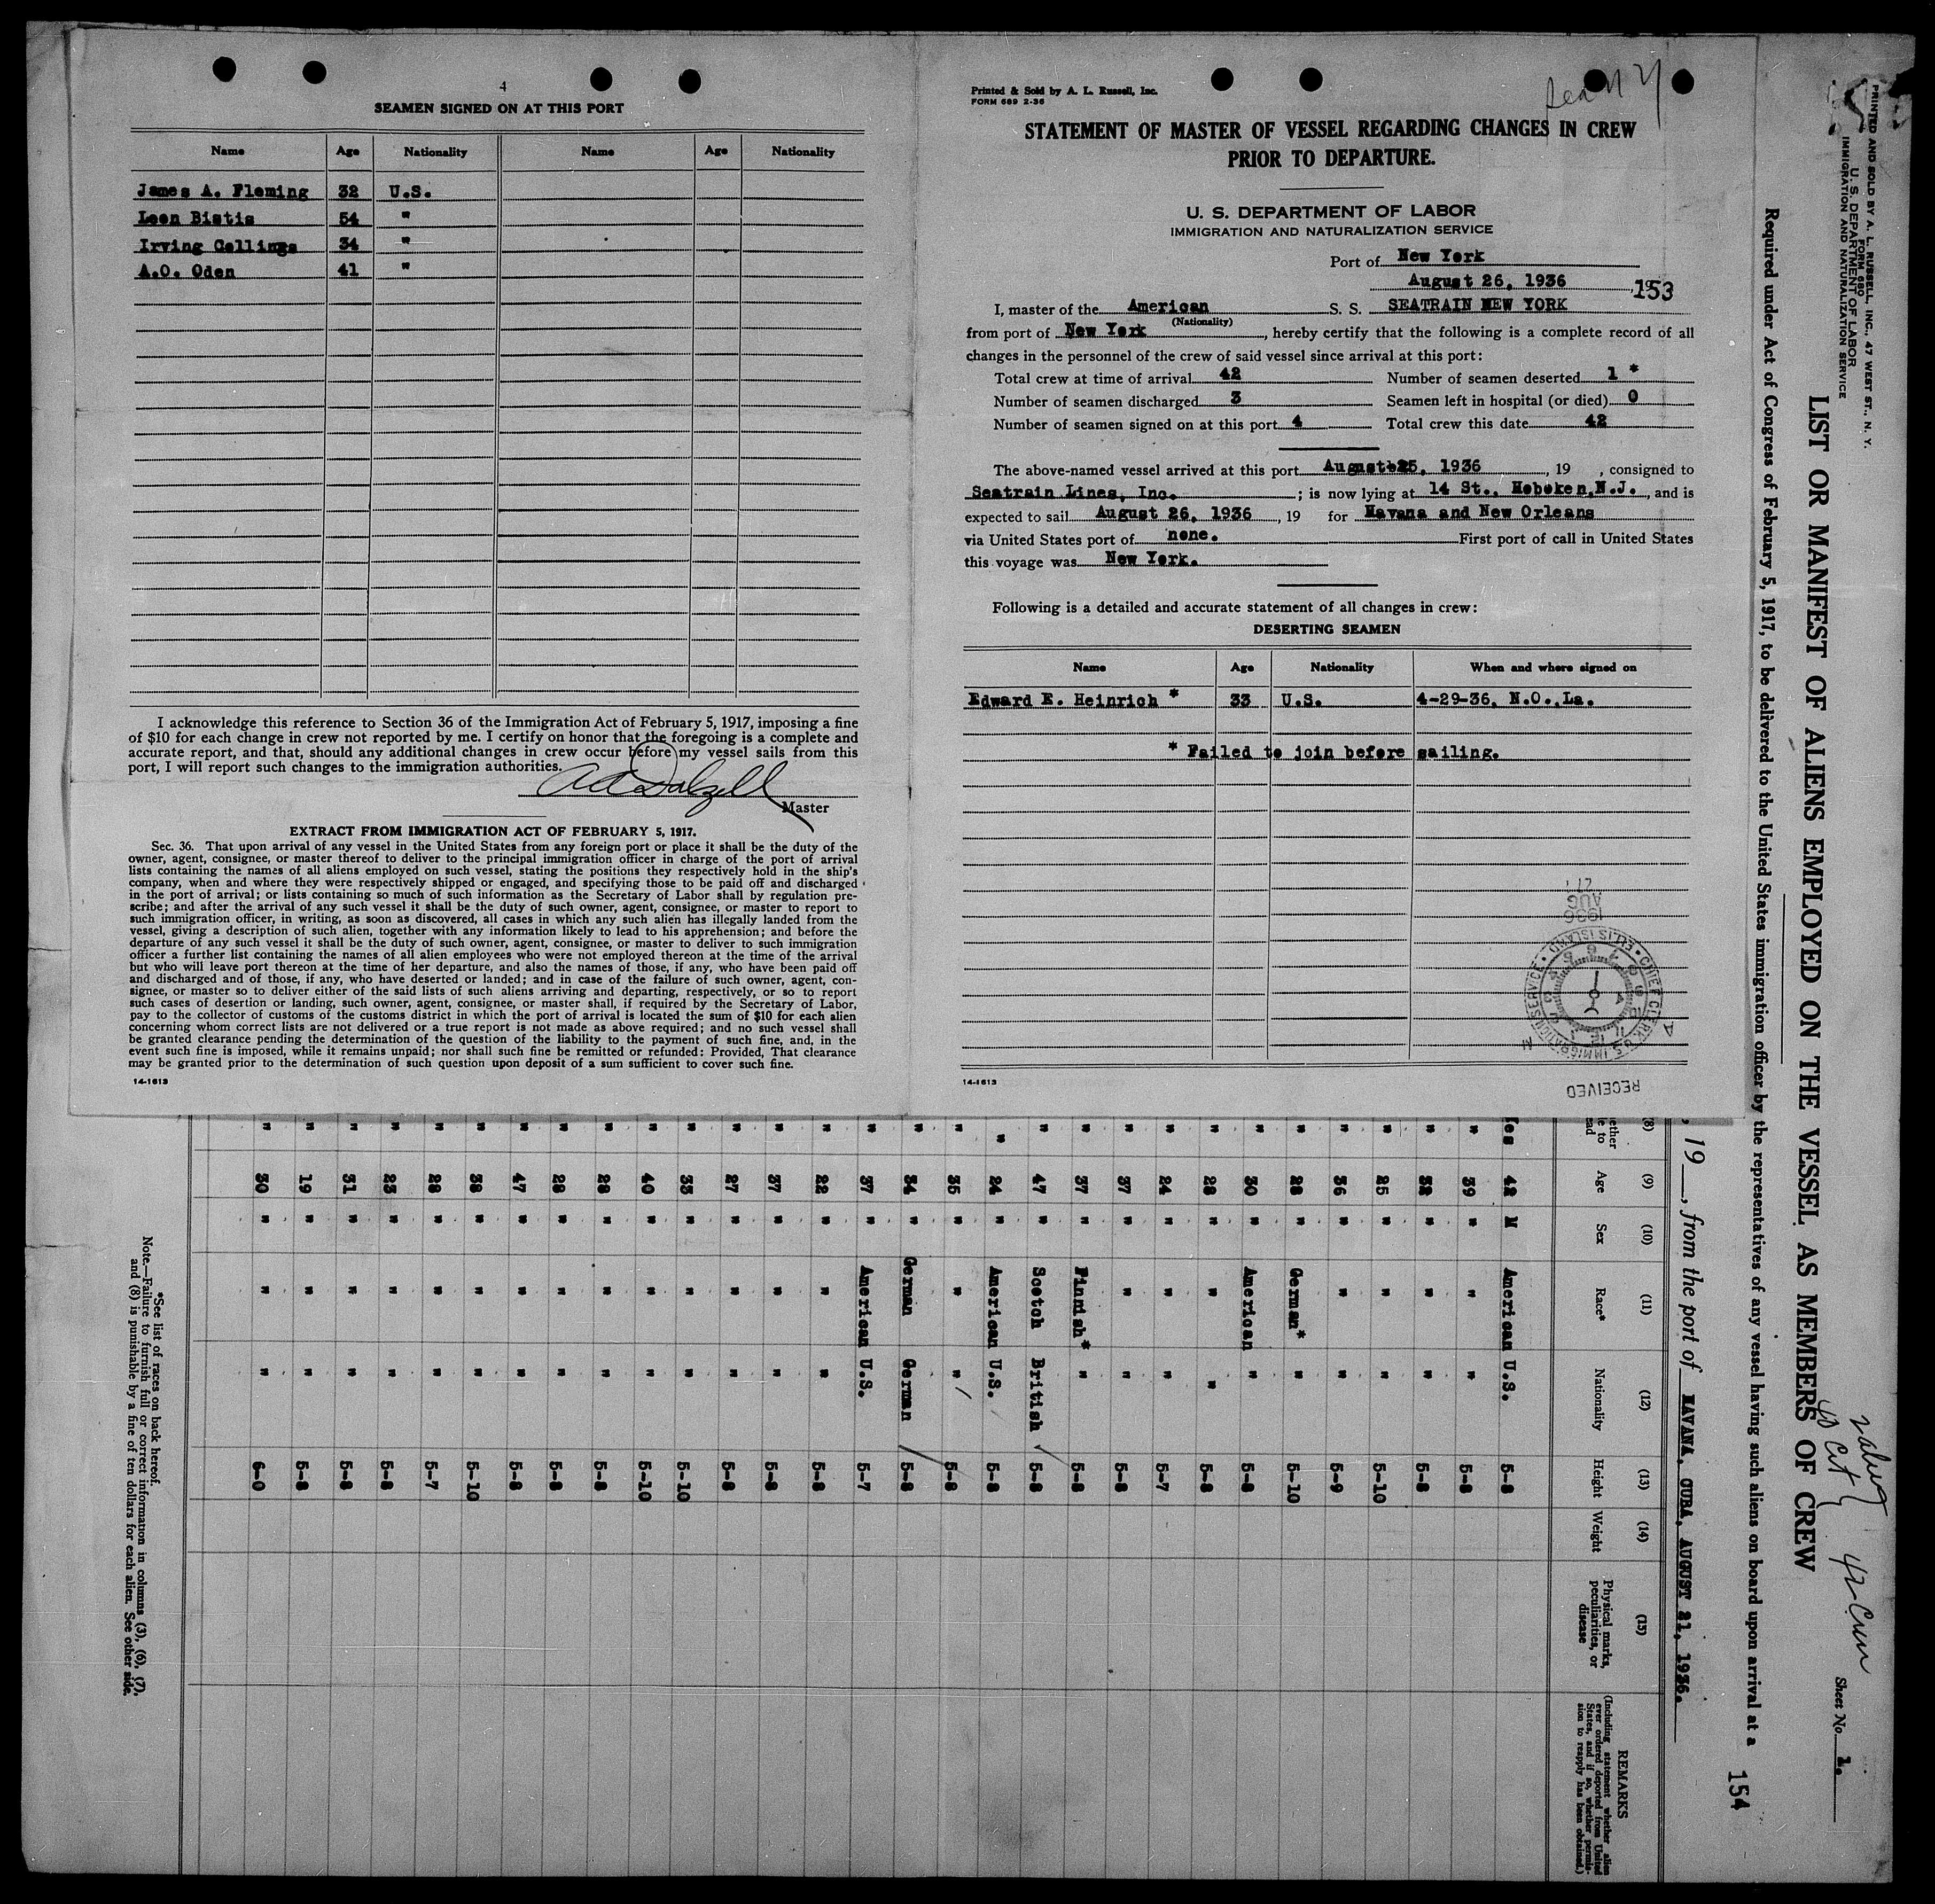 4
SEAMEN SIGNED ON AT THIS PORT
Name Age Nationality Name Age Nationality
James A. Fleming 32 U.S.
Leon Bistis 54 "
Irving Collings 34 "
A.O. Oden 41 "
I acknowledge this reference to Section 36 of the Immigration Act of February 5, 1917, imposing a fine
of $10 for each change in crew not reported by me. I certify on honor that the foregoing is a complete and
accurate report, and that, should any additional changes in crew occur before my vessel sails from this
port, I will report such changes to the immigration authorities.
Master
EXTRACT FROM IMMIGRATION ACT OF FEBRUARY 5, 1917.
Sec. 36. That upon arrival of any vessel in the United States from any foreign port or place it shall be the duty of the
owner, agent, consignee, or master thereof to deliver to the principal immigration officer in charge of the port of arrival
lists containing the names of all aliens employed on such vessel, stating the positions they respectively hold in the ship's
company, when and where they were respectively shipped or engaged, and specifying those to be paid off and discharged
in the port of arrival; or lists containing so much of such information as the Secretary of Labor shall by regulation pre-
scribe; and after the arrival of any such vessel it shall be the duty of such owner, agent, consignee, or master to report to
such immigration officer, in writing, as soon as discovered, all cases in which any such alien has illegally landed from the
vessel, giving a description of such alien, together with any information likely to lead to his apprehension; and before the
departure of any such vessel it shall be the duty of such owner, agent, consignee, or master to deliver to such immigration
officer a further list containing the names of all alien employees who were not employed thereon at the time of the arrival
but who will leave port thereon at the time of her departure, and also the names of those, if any, who have been paid off
and discharged and of those, if any, who have deserted or landed; and in case of the failure of such owner, agent, con-
signee, or master so to deliver either of the said lists of such aliens arriving and departing, respectively, or so to report
such cases of desertion or landing, such owner, agent, consignee, or master shall, if required by the Secretary of Labor,
pay to the collector of customs of the customs district in which the port of arrival is located the sum of $10 for each alien
concerning whom correct lists are not delivered or a true report is not made as above required; and no such vessel shall
be granted clearance pending the determination of the question of the liability to the payment of such fine, and, in the
event such fine is imposed, while it remains unpaid; nor shall such fine be remitted or refunded: Provided, That clearance
may be granted prior to the determination of such question upon deposit of a sum sufficient to cover such fine.
14-1613
Printed & Sold by A. L. Russell, Inc.
FORM 689 2-36
STATEMENT OF MASTER OF VESSEL REGARDING CHANGES IN CREW
PRIOR TO DEPARTURE.
U. S. DEPARTMENT OF LABOR
IMMIGRATION AND NATURALIZATION SERVICE
Port of New York
August 26, 1936
153
I, master of the American S. S. SEATRAIN NEW YORK
(Nationality)
from port of New York, hereby certify that the following is a complete record of all
changes in the personnel of the crew of said vessel since arrival at this port:
Total crew at time of arrival 42 Number of seamen deserted 1 *
Number of seamen discharged 3 Seamen left in hospital (or died) 0
Number of seamen signed on at this port 4 Total crew this date 42
The above-named vessel arrived at this port August 25, 1936, 19 , consigned to
Seatrain Lines, Inc. ; is now lying at 14 St., Hoboken, N.J., and is
expected to sail August 26, 1936, 19 for Havana and New Orleans
via United States port of none. First port of call in United States
this voyage was New York.
Following is a detailed and accurate statement of all changes in crew:
DESERTING SEAMEN
Name Age Nationality When and where signed on
Edward E. Heinrich * 33 U.S. 4-29-36, N.O., La.
* Failed to join before sailing.
RECEIVED
CHIEF CLERK U.S. IMMIGRATION SERVICE • ELLIS ISLAND •
A M
1936
AUG
27
14-1613
PRINTED AND SOLD BY A. L. RUSSELL, INC., 47 WEST ST., N. Y.
FORM 680
U. S. DEPARTMENT OF LABOR
IMMIGRATION AND NATURALIZATION SERVICE
42 Crew
Sheet No. 1.
LIST OR MANIFEST OF ALIENS EMPLOYED ON THE VESSEL AS MEMBERS OF CREW
Required under Act of Congress of February 5, 1917, to be delivered to the United States immigration officer by the representatives of any vessel having such aliens on board upon arrival at a
154
, 19 , from the port of HAVANA, CUBA, AUGUST 21, 1936.
(8) (9) (10) (11) (12) (13) (14) (15)
Age Sex Race* Nationality Height Weight Physical marks, peculiarities, or disease
REMARKS
(Including statement whether alien
ever ordered deported from United
States, and if so, whether permis-
sion to reapply has been obtained.)
Yes 42 M American U.S. 5-8
" 39 " " " 5-8
" 32 " " " 5-8
" 25 " " " 5-10
" 36 " " " 5-9
" 28 " German* " 5-10
" 30 " American " 5-8
" 28 " " " 5-8
" 24 " " " 5-7
" 37 " " " 5-8
" 37 " Finnish* " 5-8
" 47 " Scotch British 5-8
" 24 " American U.S. 5-8
" 35 " " " 5-8
" 34 " German German 5-8
" 37 " American U.S. 5-7
" 22 " " " 5-8
" 37 " " " 5-8
" 27 " " " 5-8
" 33 " " " 5-10
" 40 " " " 5-10
" 28 " " " 5-8
" 28 " " " 5-8
" 47 " " " 5-8
" 38 " " " 5-10
" 28 " " " 5-7
" 23 " " " 5-8
" 31 " " " 5-8
" 19 " " " 5-8
" 30 " " " 6-0
*See list of races on back hereof.
Note.—Failure to furnish full or correct information in columns (3), (6), (7),
and (8) is punishable by a fine of ten dollars for each alien. See other side.